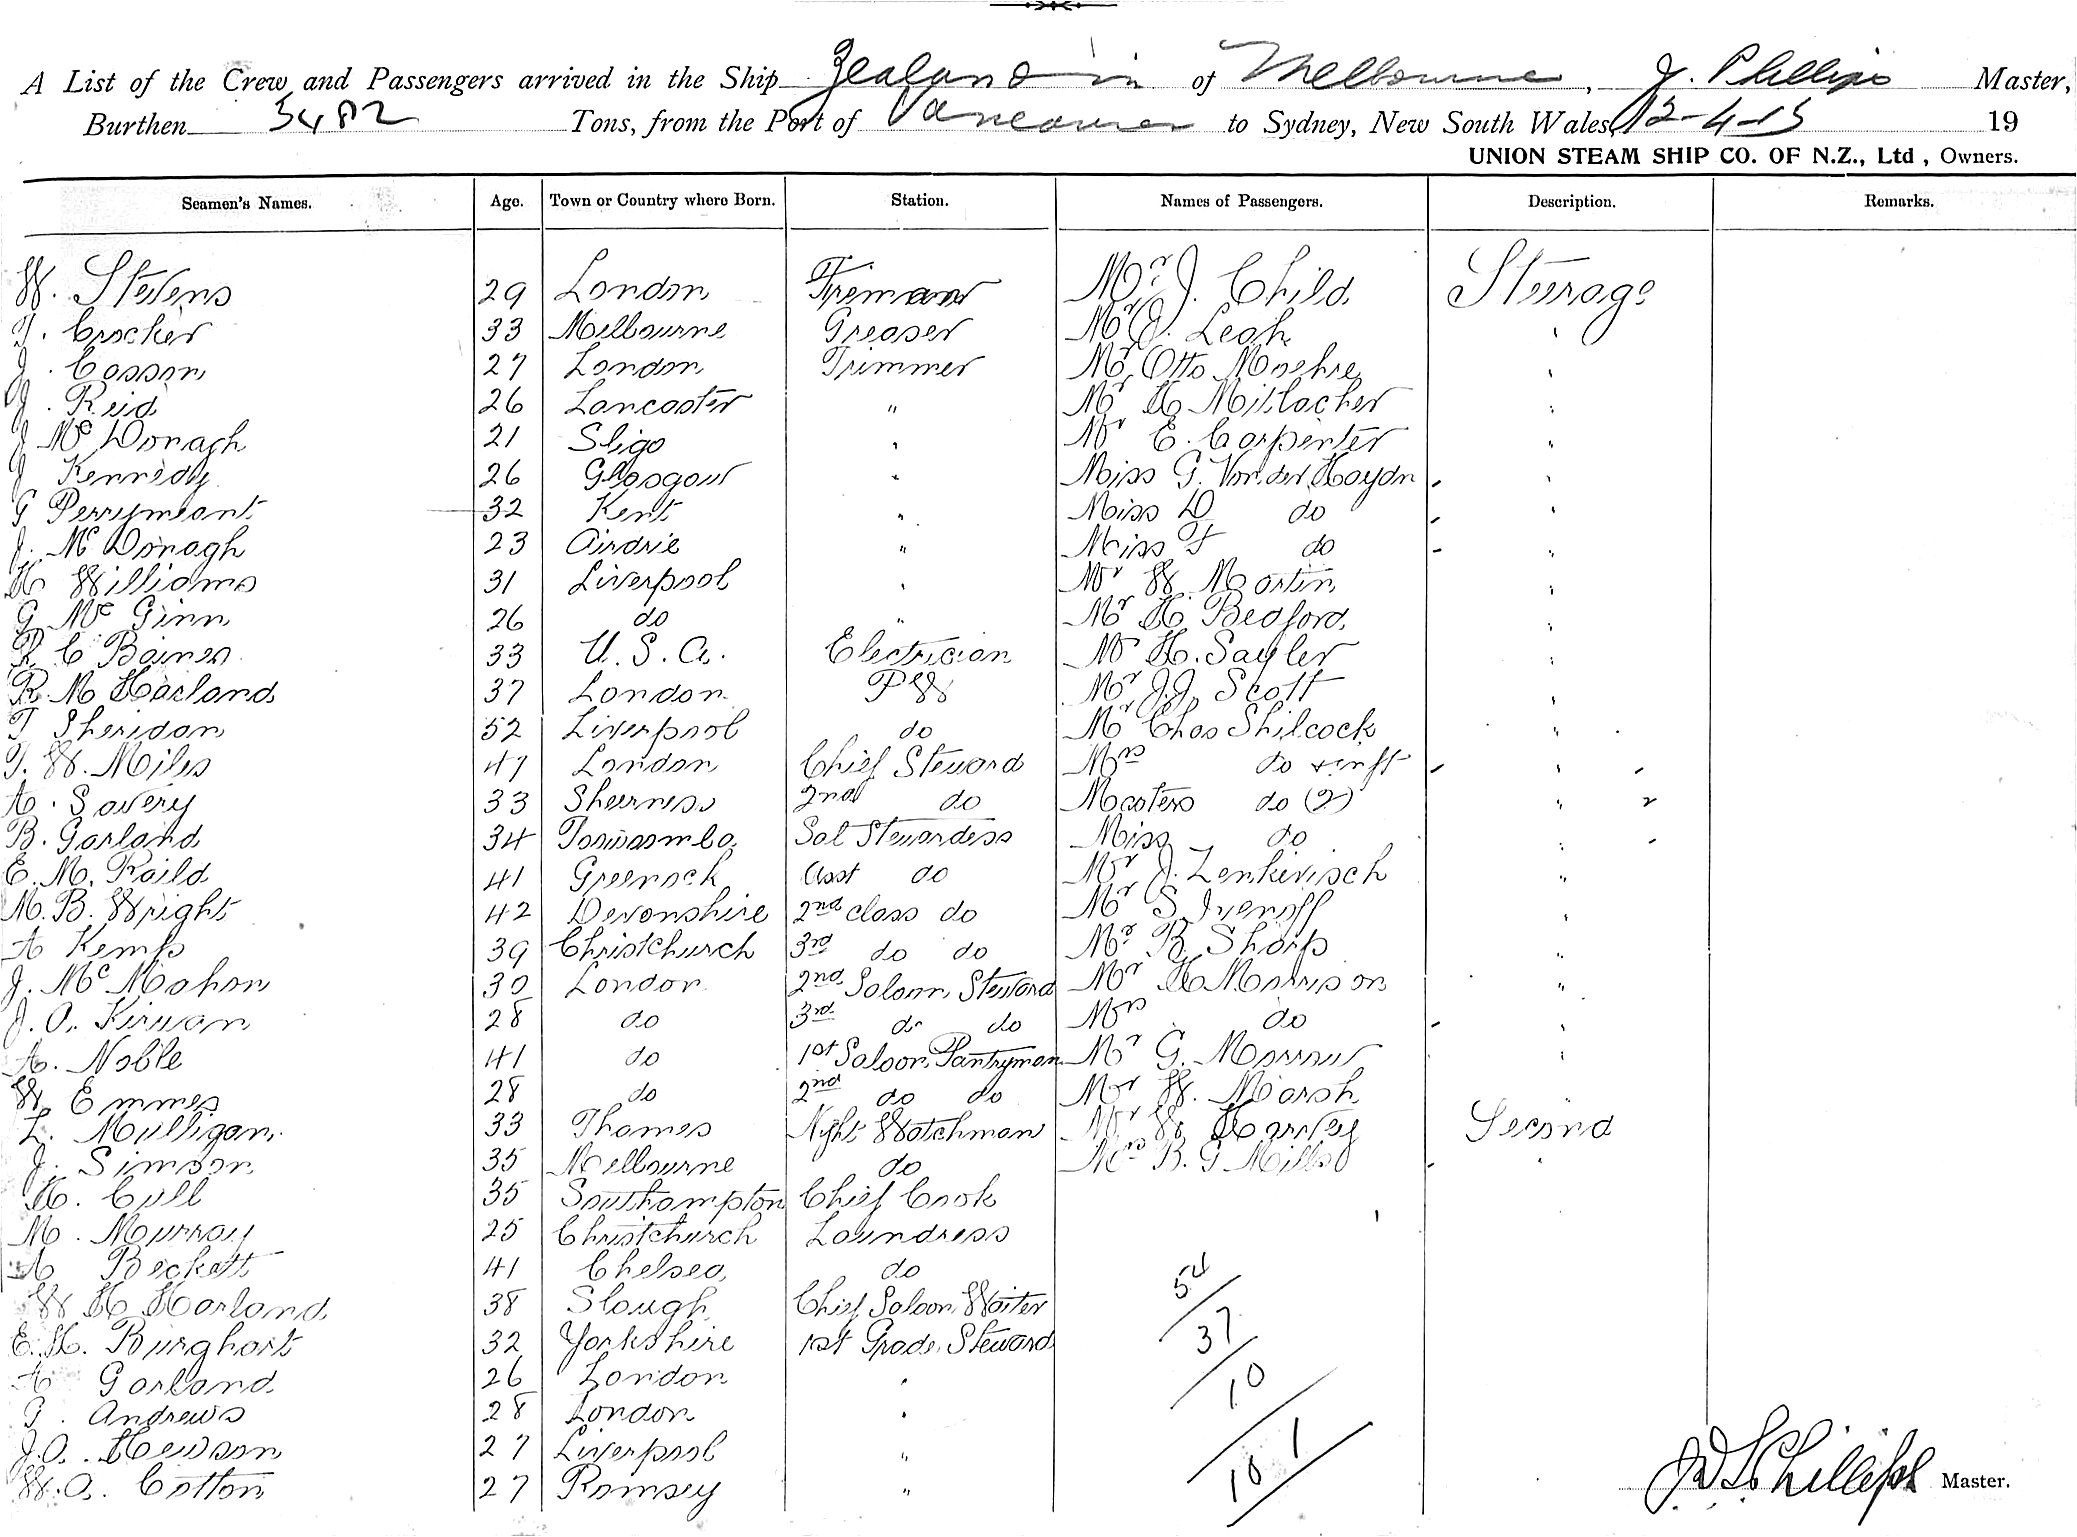 A List of the Crew and Passengers arrived in the Ship Zealandia of Melbourne, J. Phillips Master,
Burthen 5482 Tons, from the Port of Vancouver to Sydney, New South Wales, 12-4-15 19
UNION STEAM SHIP CO. OF N.Z., Ltd, Owners.
Seamen's Names. Age. Town or Country where Born. Station. Names of Passengers. Description. Remarks.
W. Stevens 29 London Fireman Mr J. Child Steerage
T. Crocker 33 Melbourne Greaser Mr J. Leah "
J. Cosson 27 London Trimmer Mr Otto Moehre "
J. Reid 26 Lancaster " Mr H Mitlacher "
J McDonagh 21 Sligo " Mr E. Carpenter "
J Kennedy 26 Glasgow " Miss G. Von der Haydn "
G Perrymeant 32 Kent " Miss D do "
J. McDonagh 23 Airdrie " Miss F do "
H Williams 31 Liverpool " Mr W. Martin "
G McGinn 26 do " Mr H Bedford "
R C Baines 33 U.S.A. Electrician Mr H. Sayler "
R. M Harland 37 London P Mr J.J. Scott "
T Sheridan 52 Liverpool do Mr Chas Shilcock "
T. W. Miles 47 London Chief Steward Mrs do + inft "
A. Savery 33 Sheerness 2nd do Masters do (2) " 2
B. Garland 34 Toowoomba Sal Stewardess Miss do "
E. M. Raild 41 Greenock Asst do Mr J. Zenkivisch "
M. B. Wright 42 Devonshire 2nd class do Mr S. Ivenoff "
A Kemp 39 Christchurch 3rd do do Mr R Sharp "
J. McMahon 30 London 2nd Saloon Steward Mr H Morrison "
J. A. Kirwan 28 do 3rd do do Mrs do "
A. Noble 41 do 1st Saloon Pantryman Mr G. Morrow "
W Emmes 28 do 2nd do do Mr W. Marsh "
L. Mulligan 33 Thames Night Watchman Mr W Harvey Second
J. Simson 35 Melbourne do Mrs B. G Mills "
H. Cull 35 Southampton Chief Cook
M. Murray 25 Christchurch Laundress
A Beckett 41 Chelsea do
W H Harland 38 Slough Chief Saloon Waiter 54
E. H. Burghart 32 Yorkshire 1st Grade Steward 37
A Garland 26 London " 10
G. Andrews 28 London "
J.A. Hewson 27 Liverpool " 101
W. A. Cotton 27 Romsey " Master.